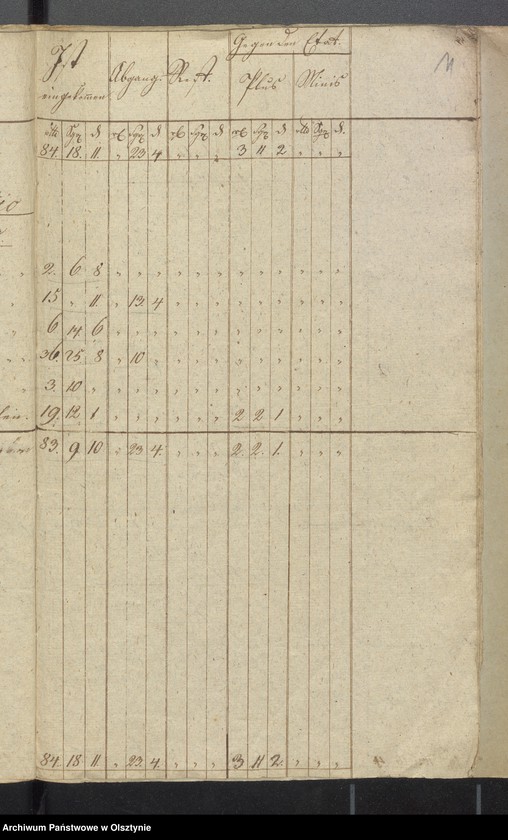 Gegen den Etat.
Ist Abgang. Rest. Plus Minus
eingekommen
rtl Sgr d rtl Sgr d rtl Sgr d rtl Sgr d rtl Sgr d.
84. 18. 11. „ 23 4 „ „ „ 3 11 2 „ „ „
2. 6. 8 „ „ „ „ „ „ „ „ „ „ „ „
15 „ 11. „ 13. 4 „ „ „ „ „ „ „ „ „
6 14 6 „ „ „ „ „ „ „ „ „ „ „ „
36. 25 8 „ 10 „ „ „ „ „ „ „ „ „ „
3. 10 „ „ „ „ „ „ „ „ „ „ „ „ „
19. 12. 1 „ „ „ „ „ „ 2 2 1 „ „ „
83. 9 10 „ 23 4. „ „ „ 2. 2. 1. „ „ „
84 18 11. „ 23. 4. „ „ „ 3 11 2. „ „ „
11
Archiwum Państwowe w Olsztynie